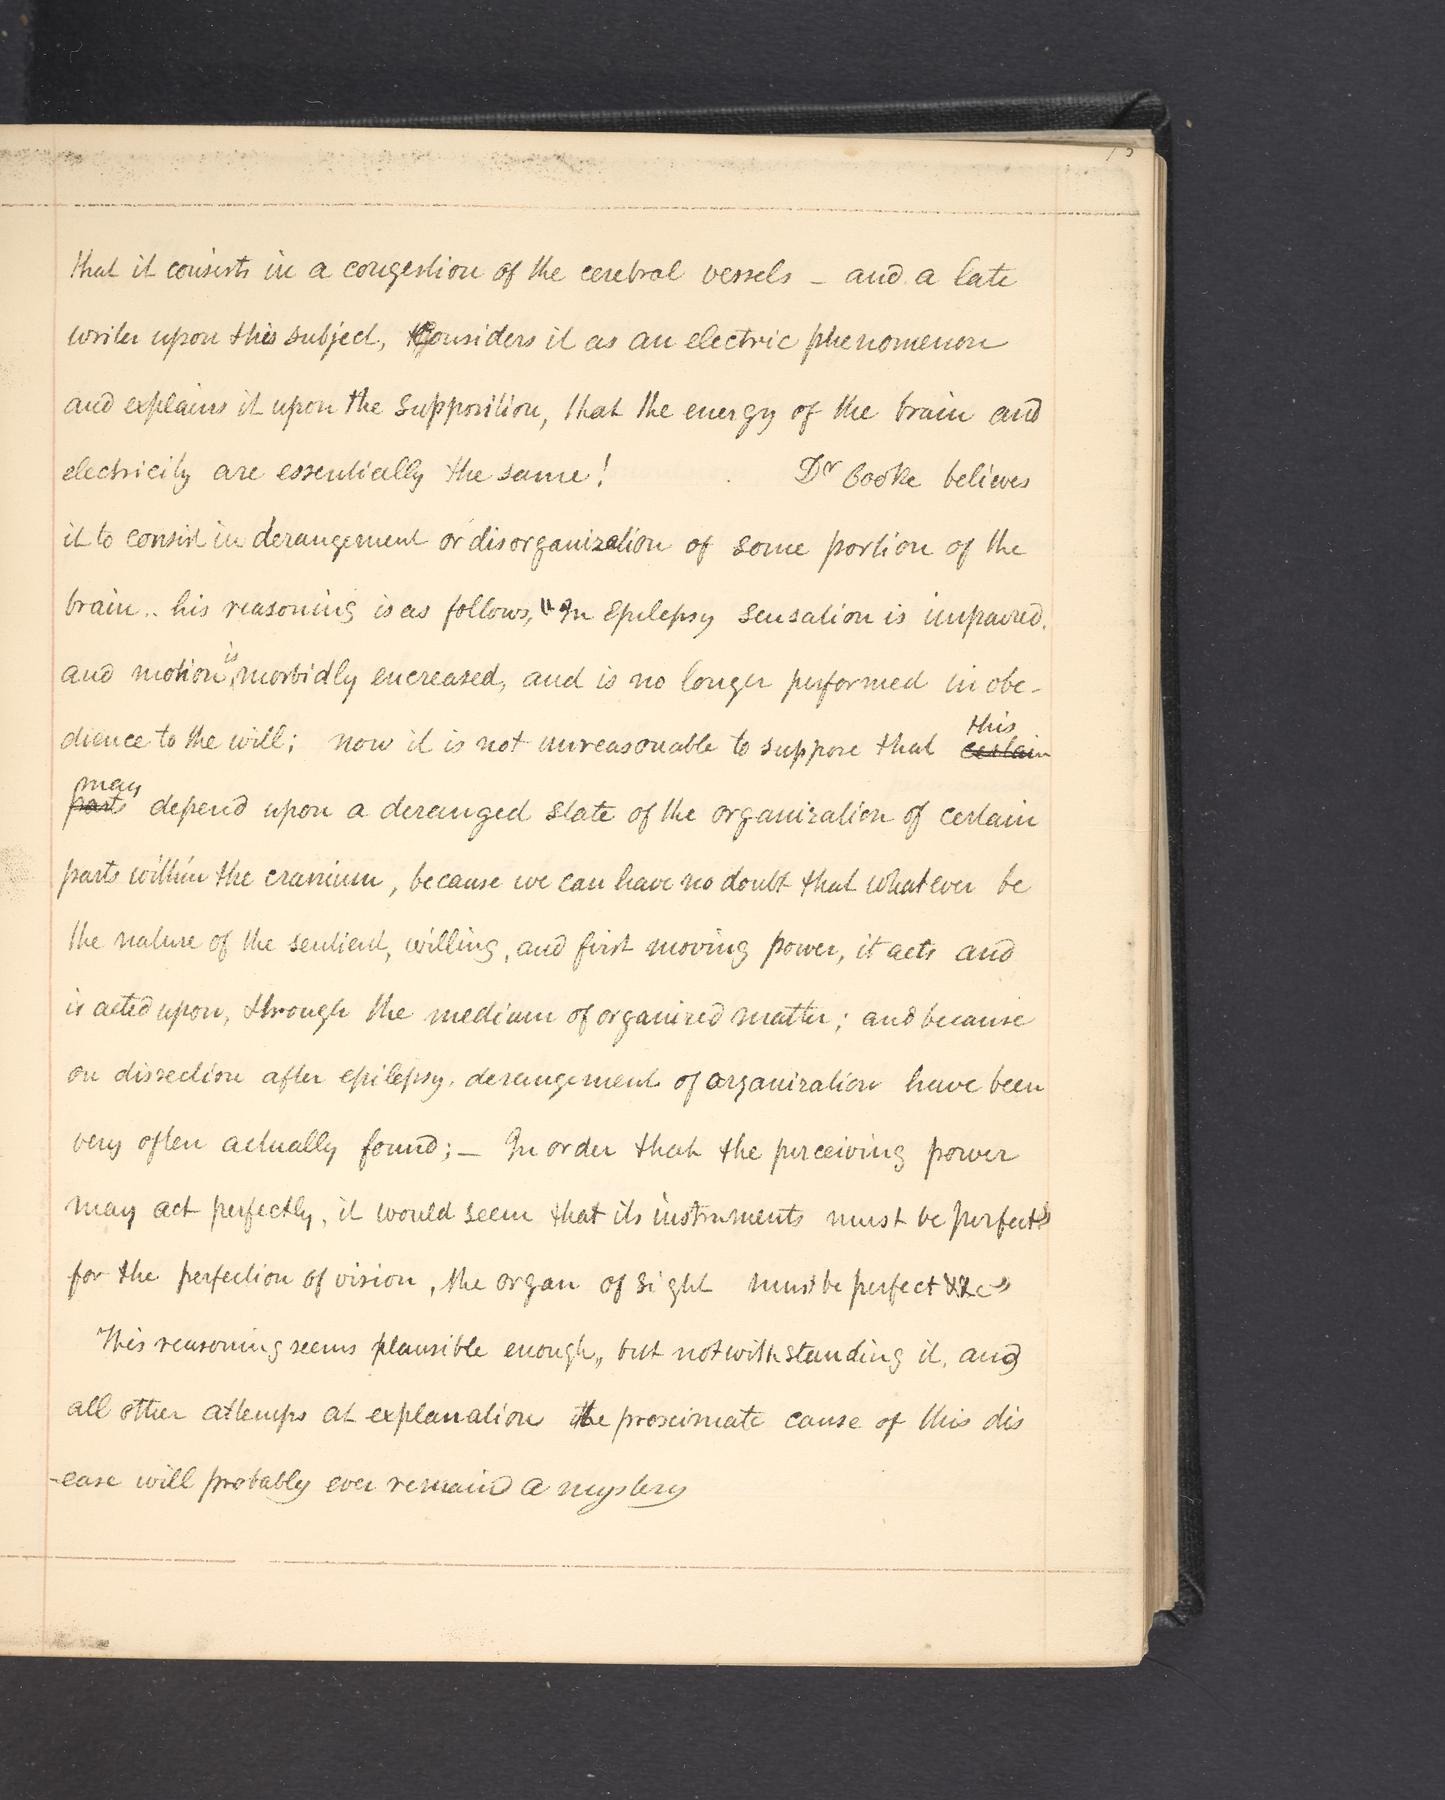 that it consists in a congestion of the cerebral vessels – and a late
writer upon this subject, Considers it as an electric phenomenon
and explains it upon the Supposition, that the energy of the brain and
electricity are essentially the same! Dr Cooke believes
it to consist in derangement or disorganization of some portion of the
brain.. his reasoning is as follows, "In Epilepsy Sensation is impaired.
is
and motion morbidly encreased, and is no longer performed in obe-
this
dience to the will; now it is not unreasonable to suppose that certain
may
parts depend upon a deranged state of the organization of certain
parts within the cranium, because we can have no doubt that whatever be
the nature of the sentient, willing, and first moving power, it acts and
is acted upon, through the medium of organized matter; and because
on dissection after epilepsy, derangement of organization have been
very often actually found; – In order that the perceiving power
may act perfectly, it would seem that its instruments must be perfect
for the perfection of vision, the organ of sight must be perfect &c"
This reasoning seems plausible enough, but notwithstanding it, and
all other attemps at explanation the proximate cause of this dis
-ease will probably ever remain a mystery